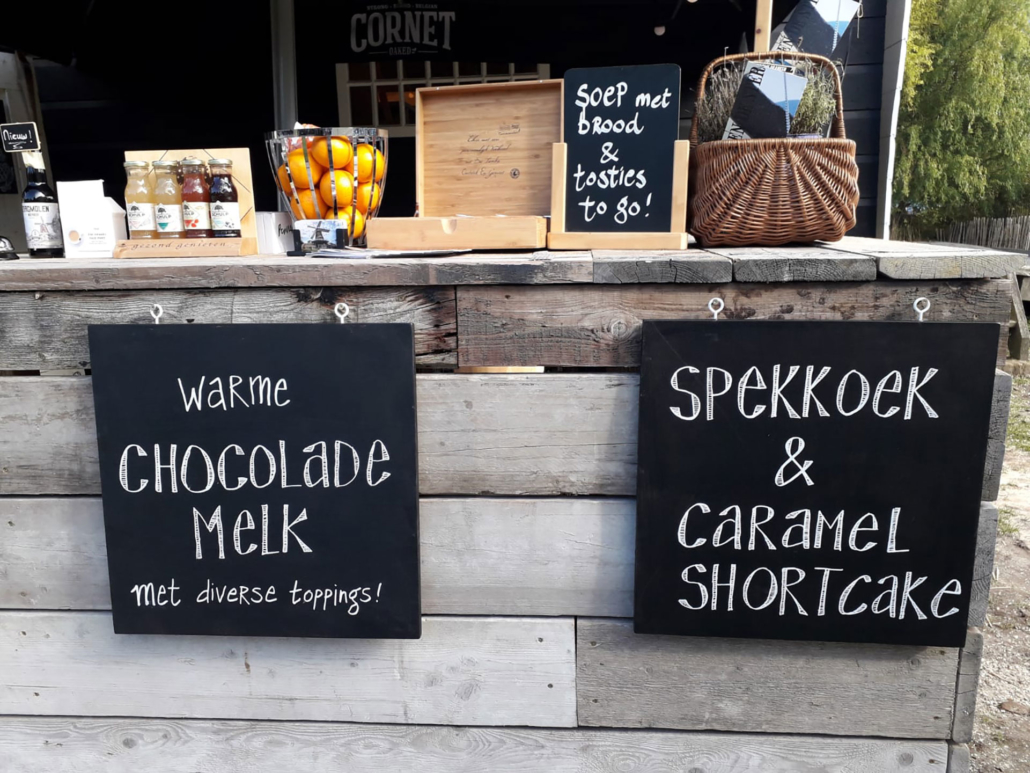 CORNET
Nieuw!
SOEP met
brood
&
tosties
to go!
gezond genieten
WARME
CHOCOLADE
MELK
met diverse toppings!
SPEKKOEK
&
CARAMEL
SHORTCAKE